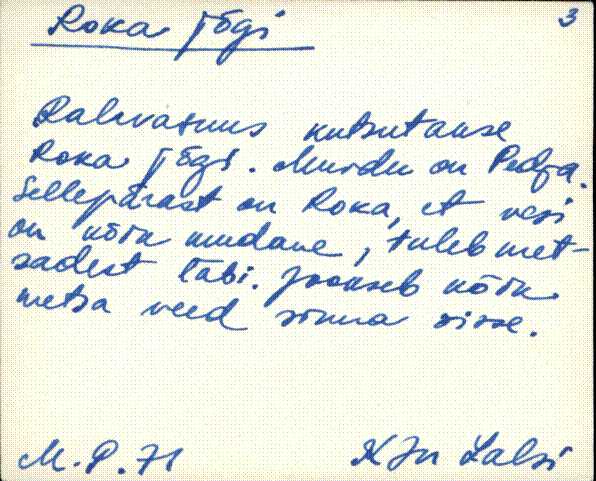 Roka jõgi
3
Rahvasuus kutsutakse
Roka jõgi. Muidu on Pedja.
Sellepärast on Roka, et vesi
on kõik mudane, tuleb met-
sadest läbi. Jookseb kõik
metsa veed sinna sisse.
M. P. 71
KJn Lalsi